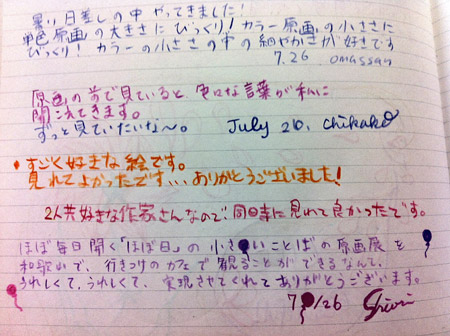 暑い日差しの中 やってきました！
単色原画の大きさにびっくり！カラー原画の小ささに
びっくり！カラーの小ささの中の細やかさが好きです
7.26 omassan
原画の前で見ていると 色々な言葉が私に
聞こえてきます。
ずっと見ていたいな〜。 July 26, chikako
すごく好きな絵です。
見れてよかったです、、、ありがとうございました！
2人共好きな作家さんなので、同時に見れて良かったです。
ほぼ毎日開く「ほぼ日」の小さいことばの原画展を
和歌山で、行きつけのカフェで観ることができるなんて、
うれしくて、うれしくて、実現させてくれてありがとうございます。
7/26 Shiori